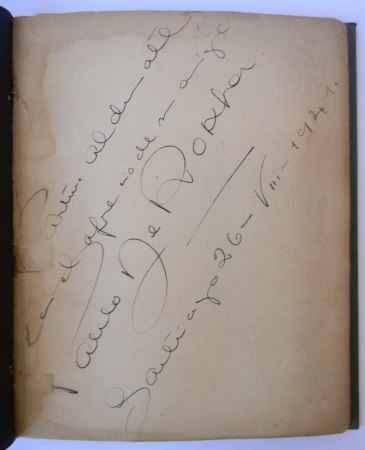 Arturo Aldunate,
con el aprecio de
Pablo De Rokha.
Santiago 26 - VIII - 1941.